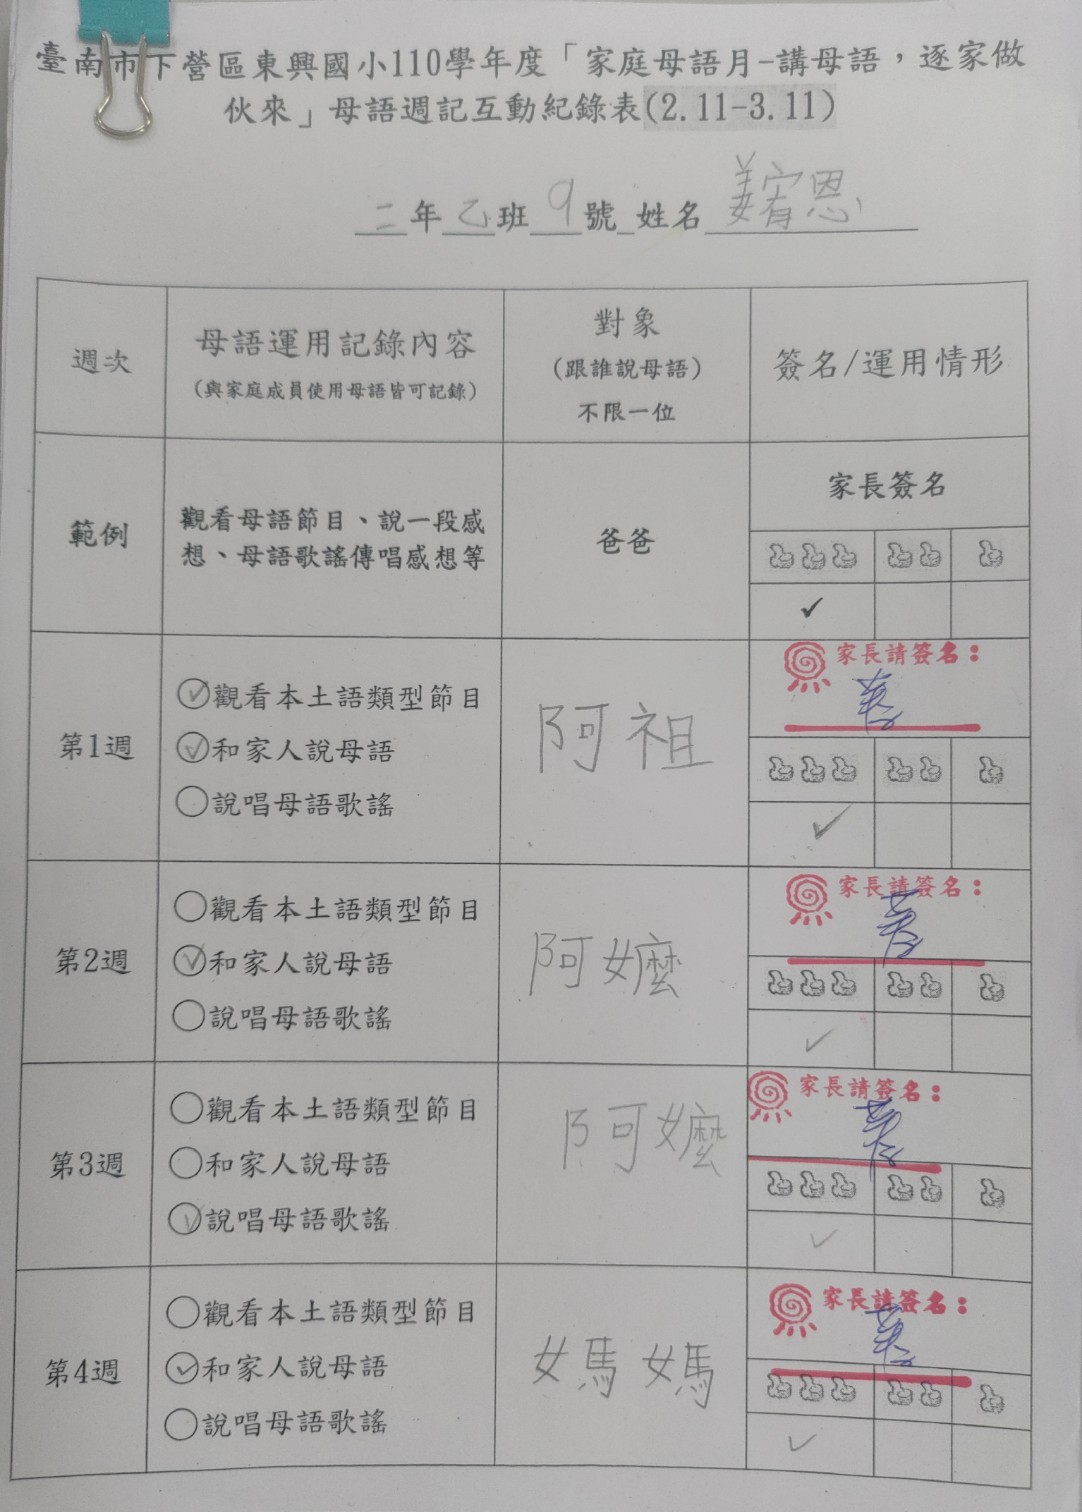 臺南市下營區東興國小110學年度「家庭母語月-講母語,逐家做
伙來」母語週記互動紀錄表(2.11-3.11)
二年乙班9號 姓名 姜宥恩
週次
母語運用記錄內容
(與家庭成員使用母語皆可記錄)
對象
(跟誰說母語)
不限一位
簽名/運用情形
範例
觀看母語節目、說一段感
想、母語歌謠傳唱感想等
爸爸
家長簽名
✓
第1週
觀看本土語類型節目
和家人說母語
說唱母語歌謠
阿祖
家長請簽名:
✓
第2週
觀看本土語類型節目
和家人說母語
說唱母語歌謠
阿嬤
家長請簽名:
✓
第3週
觀看本土語類型節目
和家人說母語
說唱母語歌謠
阿嬤
家長請簽名:
✓
第4週
觀看本土語類型節目
和家人說母語
說唱母語歌謠
媽媽
家長請簽名:
✓